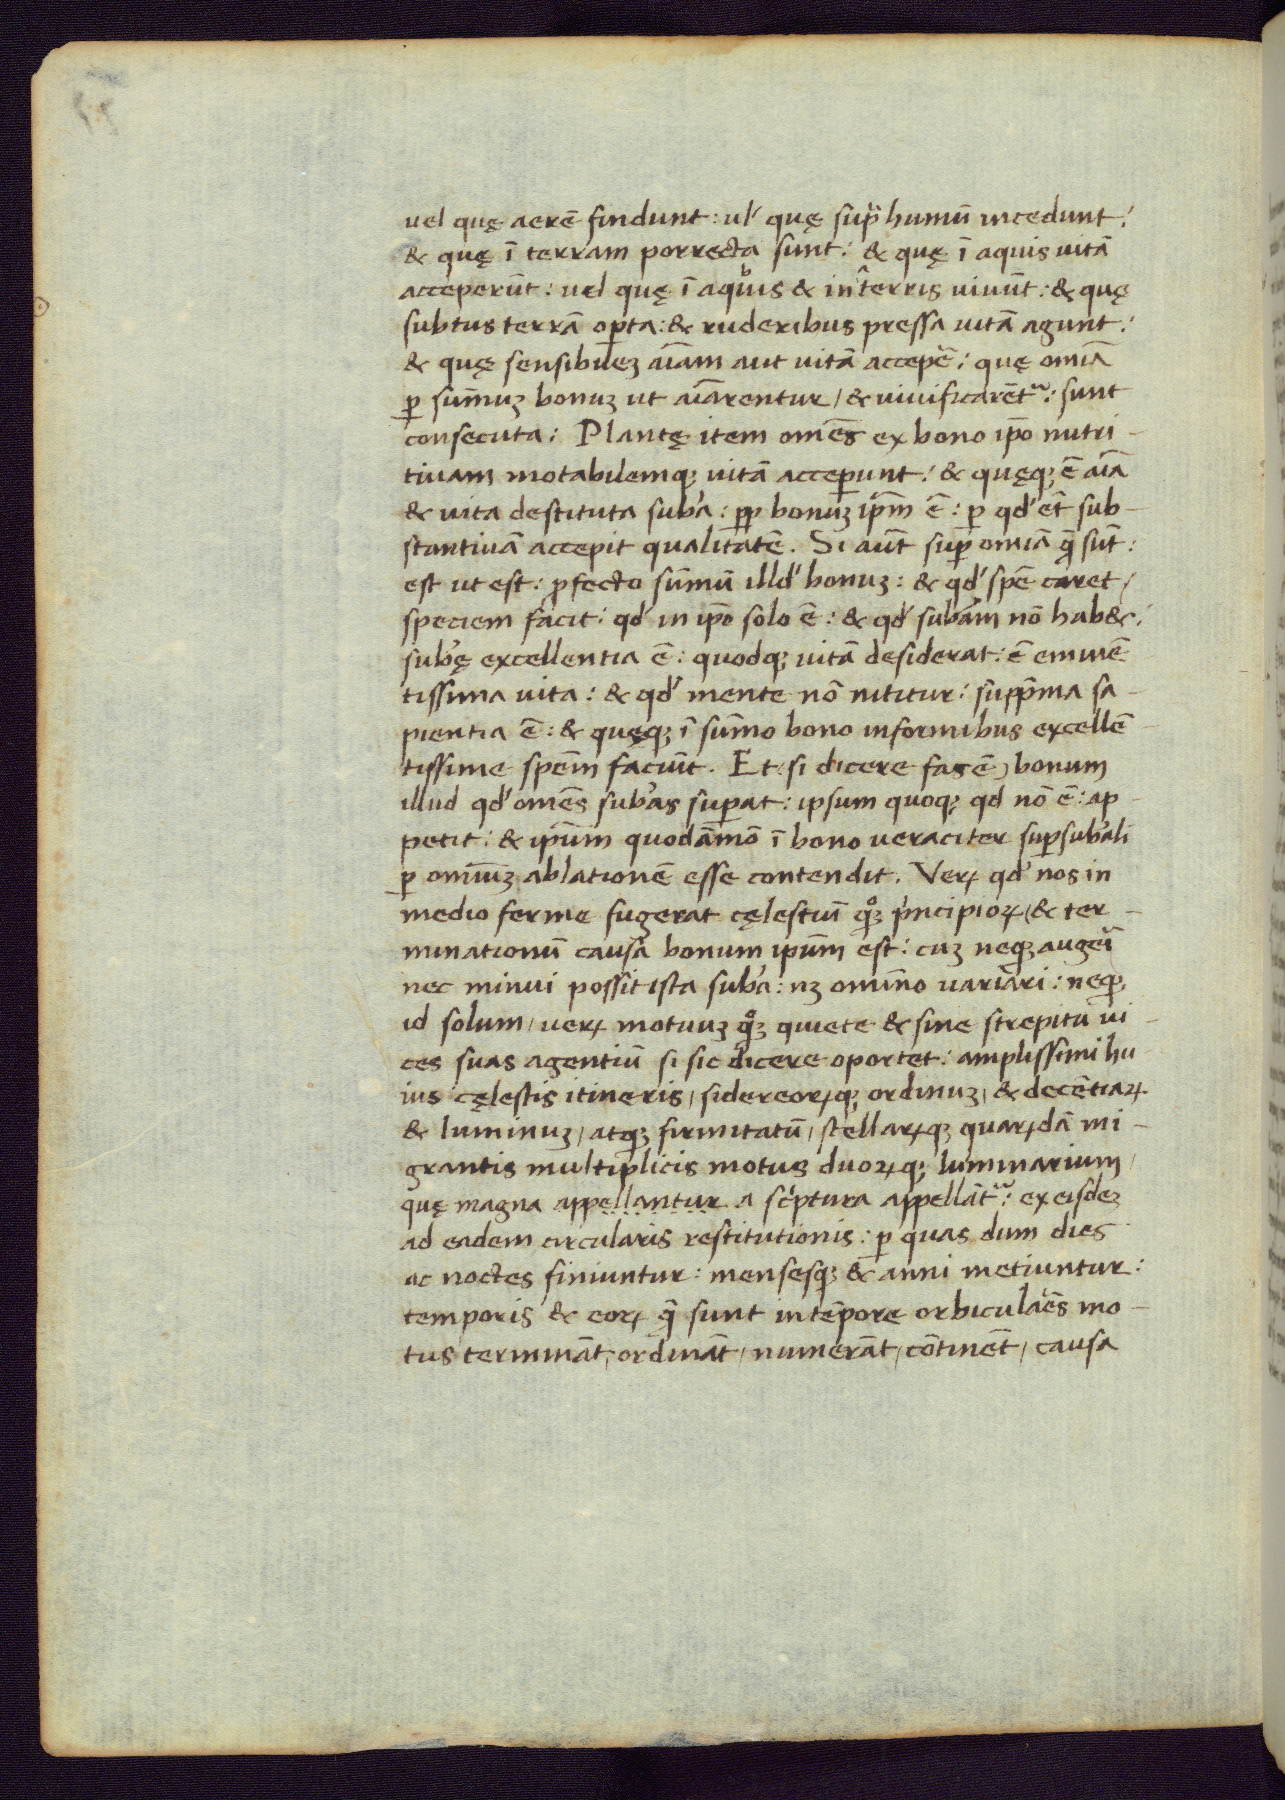 uel quę aerē findunt: ul' quę sup̄ humū incedunt:
& quę ī terram porrecta sunt: & quę ī aquis uitā
acceperūt: uel quę ī aquis & in terris uiuūt: & quę
subtus terrā op̄ta: & ruderibus pressa uitā agunt:
& quę sensibilez aīam aut uitā accepē: quę omīa
ꝑ sūmuz bonuz ut aīarentur / & uiuificarēt᷑: sunt
consecuta: Plantę item omēs ex bono ip̄o nutri-
tiuam motabilemqꝫ uitā acceꝑunt: & quęqꝫ ē aīa
& uita destituta sub'a: ꝓp bonuz ip̄m ē: ꝑ qd' et̄ sub-
stantiuā accepit qualitatē. Si aūt suꝑ omīa q̄ sūt:
est ut est: ꝓfecto sūmū illd' bonuz: & qd' spē caret /
speciem facit: qd' in ip̄o solo ē: & qd' sub'am nō hab&:
sub'ę excellentia ē: quodqꝫ uitā desiderat: ē eminē
tissima uita: & qd' mente nō nititur: supp̄ma sa-
pientia ē: & quęqꝫ ī sūmo bono informibus excellē-
tissime spēm faciūt. Et si dicere fas ē) bonum
illud qd' omēs sub'as suꝑat: ipsum quoqꝫ qd nō ē: ap-
petit: & ip̄um quodāmō ī bono ueraciter suꝑsub'ali
ꝑ omīuz ablationē esse contendit. Veꝝ qd' nos in
medio ferme fugerat cęlestiū qͦꝫ p'ncipioꝝ / & ter-
minationū causa bonum ip̄um est: cuz neqꝫ augeri
nec minui possit ista sub'a: nz omīno uariari: neqꝫ
id solum / ueꝝ motuuz qͦꝫ quiete & sine strepitu ui-
ces suas agentiū si sic dicere oportet: amplissimi hu-
ius cęlestis itineris / sidereoꝝqꝫ ordinuz / & decētiaꝝ
& luminuz / atqꝫ firmitatū / stellaꝝqꝫ quaꝝdā mi-
grantis multiplicis motus duoꝝqꝫ luminarium /
quę magna appellantur a sc'ptura appellāt᷑: ex eisdez
ad eadem circularis restitutionis: ꝑ quas dum dies
ac noctes finiuntur: mensesqꝫ & anni metiuntur:
temporis & eoꝝ q̄ sunt in tēpore orbiculāes mo-
tus termināt, ordināt / numerāt / cōtinēt / causa